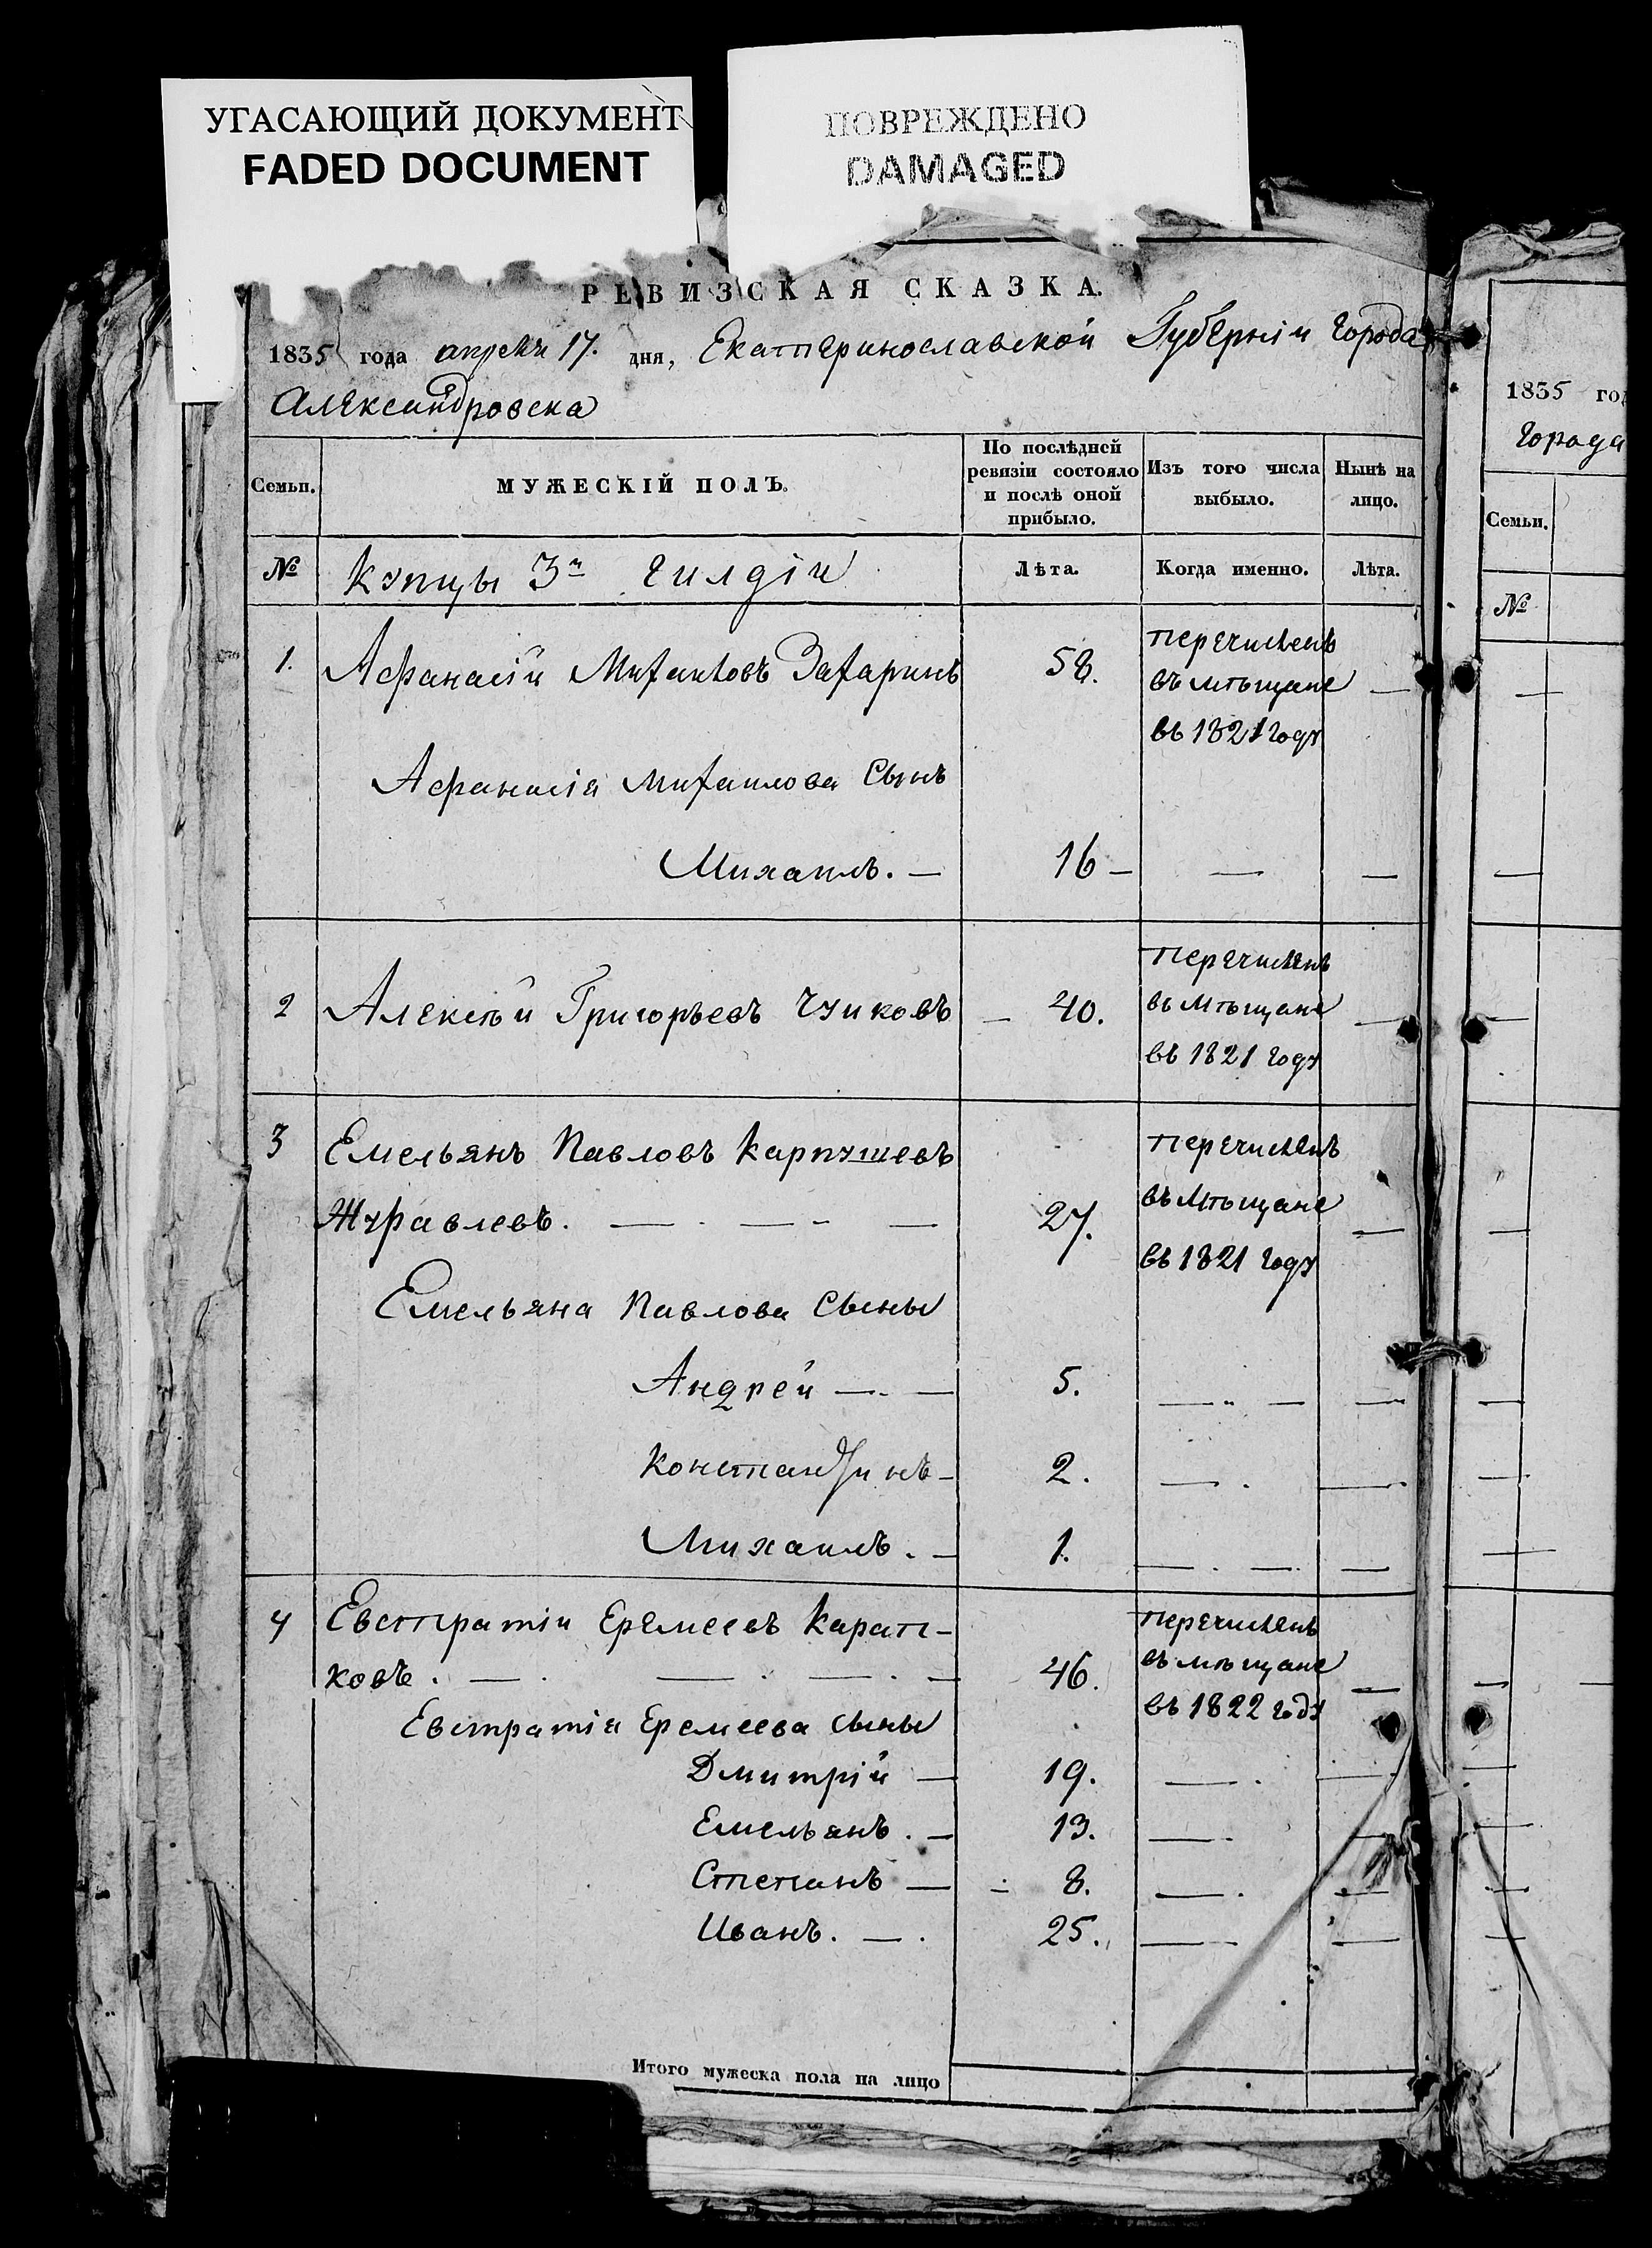 УГАСАЮЩИЙ ДОКУМЕНТ
FADED DOCUMENT
ПОВРЕЖДЕНО
DAMAGED
РЕВИЗСКАЯ СКАЗКА.
1835 года апреля 17. дня, Екатеринославской Губерніи города
Александровска
Семьи.
МУЖЕСКІЙ ПОЛЪ.
По послѣдней
ревизіи состояло
и послѣ оной
прибыло.
Изъ того числа
выбыло.
Нынѣ на
лицо.
№
Купцы 3й гилдіи
Лѣта.
Когда именно.
Лѣта.
1. Афанасій Михаиловъ Захаринъ 58. перечисленъ
въ мѣщане —
въ 1821 году
Афанасія Михаилова Сынъ
Михаилъ. — 16 — — —
2 Алексѣй Григорьевъ Чуиковъ — 40. перечисленъ
въ мѣщане —
въ 1821 году
3 Емельянъ Павловъ Карпушевъ перечисленъ
Журавлевъ. — . — - — 27. въ мѣщане —
въ 1821 году
Емельяна Павлова Сыны
Андрей — . — 5. — - — —
Константинъ — 2. — . —
Михаилъ . — 1. — . — . —
4 Евстратіи Еремеевъ Карат-
ковъ . — . — . — . — 46. перечисленъ
въ мѣщане —
въ 1822 году
Евстратія Еремеева сыны
Дмитрій — 19. — . —
Емельянъ . — 13. — . —
Степанъ — 8. — . —
Иванъ. — . 25. — —
Итого мужеска пола на лицо
1835 год
города
Семьи.
№